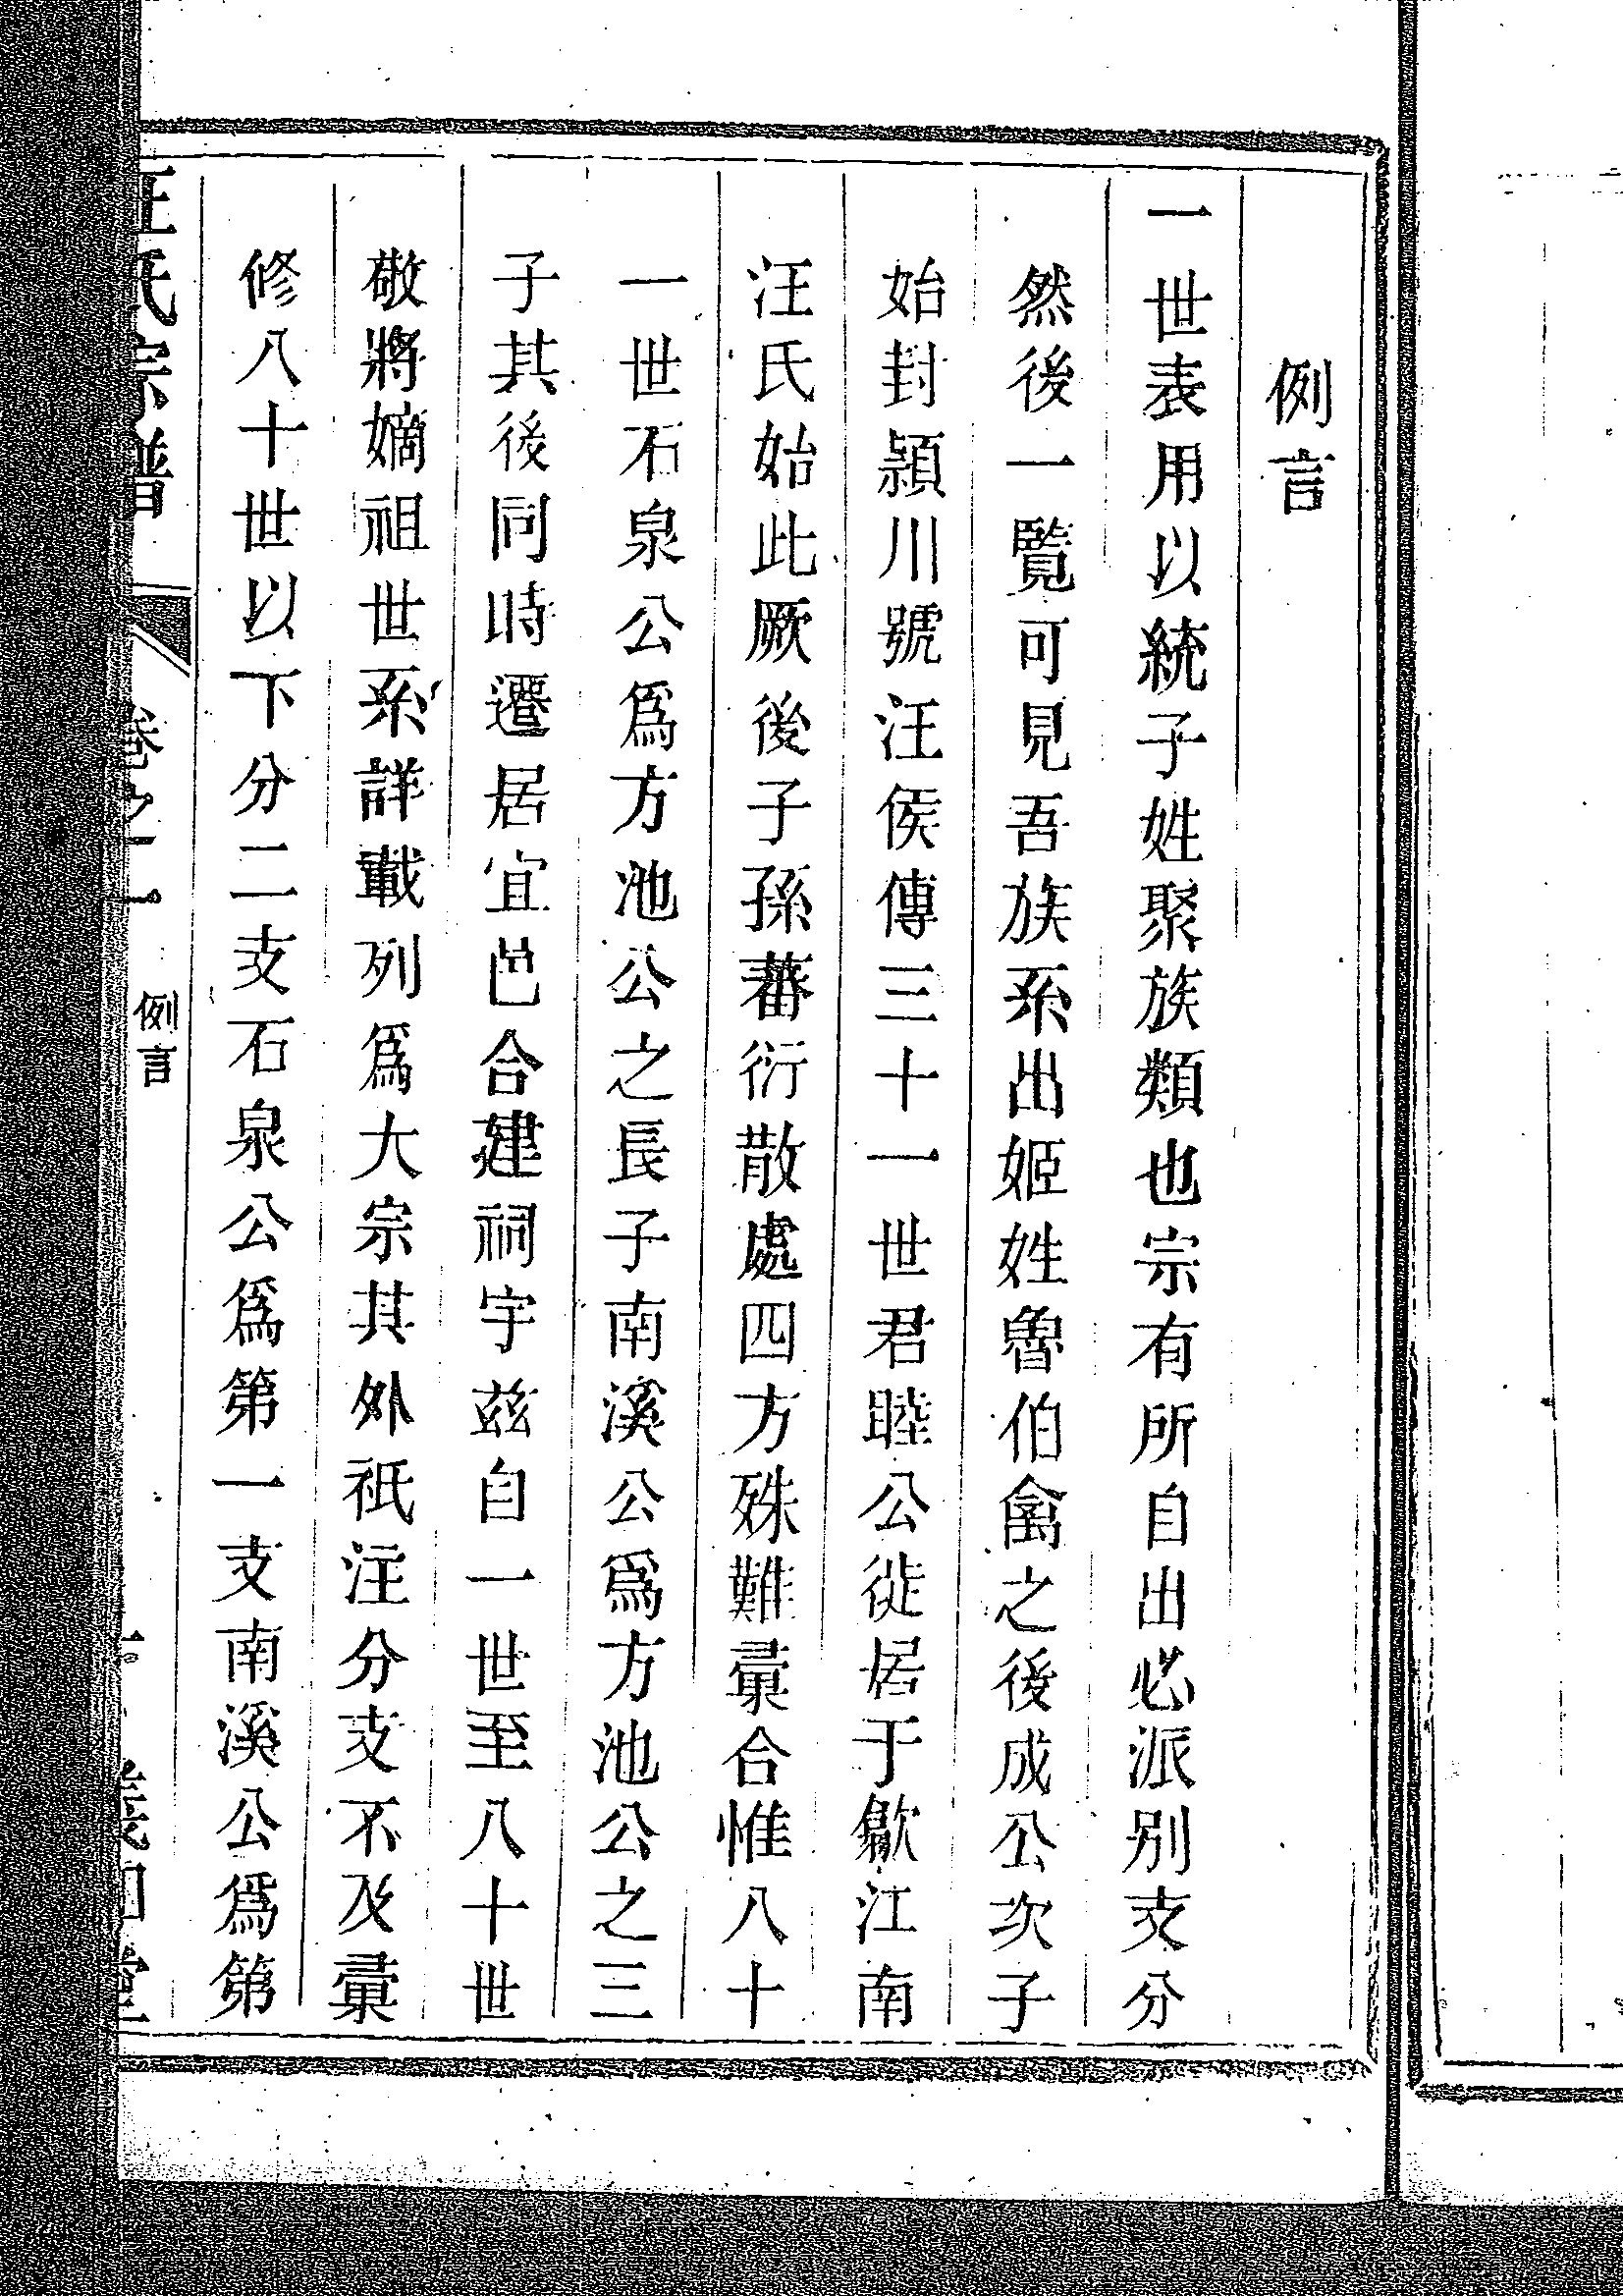 例言
一世表用以統子姓聚族類也宗有所自出必派別支分
然後一覽可見吾族系出姬姓魯伯禽之後成公次子
始封潁川號汪侯傳三十一世君睦公徙居于歙江南
汪氏始此厥後子孫蕃衍散處四方殊難彙合惟八十
一世石泉公爲方池公之長子南溪公爲方池公之三
子其後同時遷居宜邑合建祠宇兹自一世至八十世
敬將嫡祖世系詳載列爲大宗其外祇注分支不及彙
修八十世以下分二支石泉公爲第一支南溪公爲第
汪氏宗譜
卷之一
例言